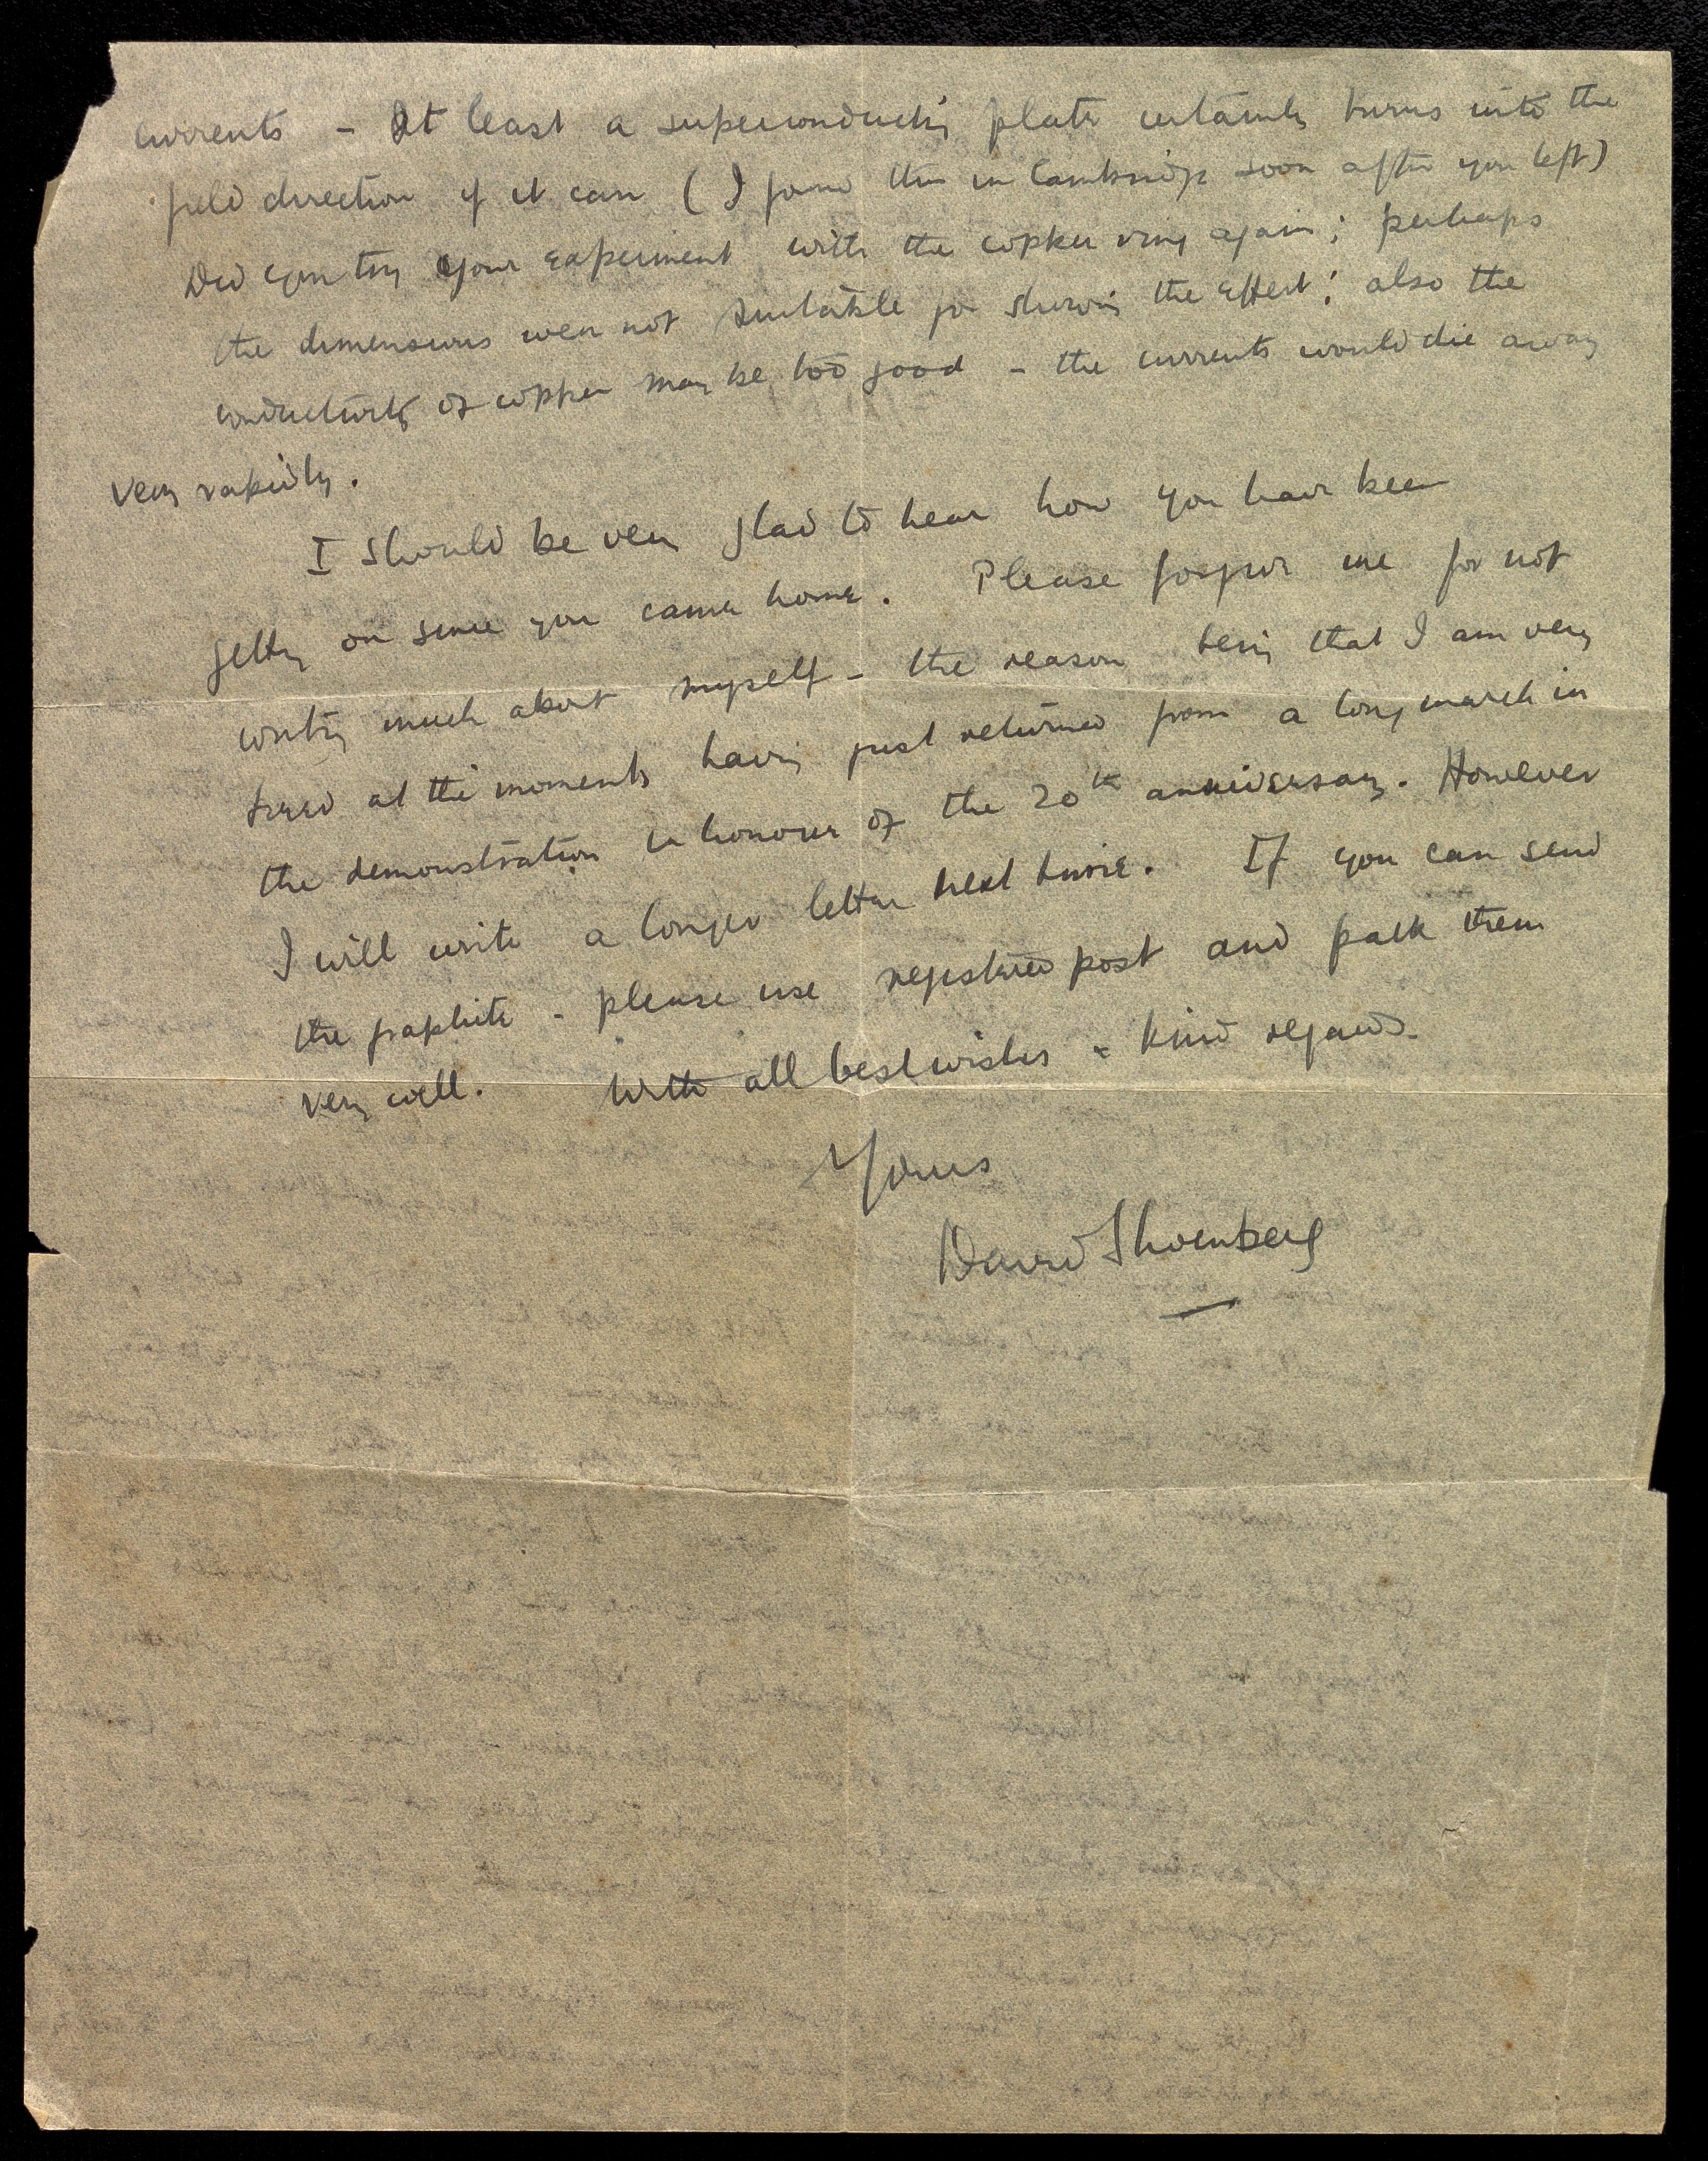 currents - At least a superconducting plate certainly turns into the
field direction if it can (I found this in Cambridge soon after you left)
Did you try your experiment with the copper ring again; perhaps
the dimensions were not suitable for showing the effect; also the
conductivity of copper may be too good - the currents would die away
very rapidly.
I should be very glad to hear how you have been
getting on since you came home. Please forgive me for not
writing much about myself - the reason being that I am very
tired at the moment, having just returned from a long march in
the demonstration in honour of the 20th anniversary. However
I will write a longer letter next time. If you can send
the graphite - please use registered post and pack them
very well. With all best wishes & kind regards.
Yours
David Shoenberg